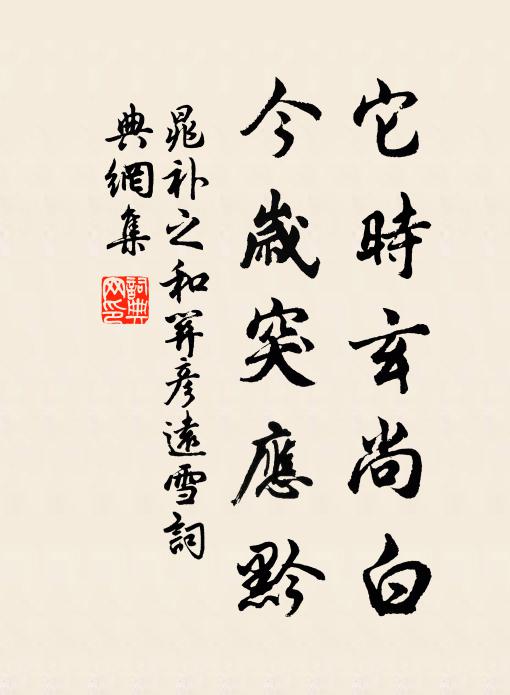 它時玄尚白
今歲突應黔
晁補之和羿彥遠雪詞
典網集
詞典網印